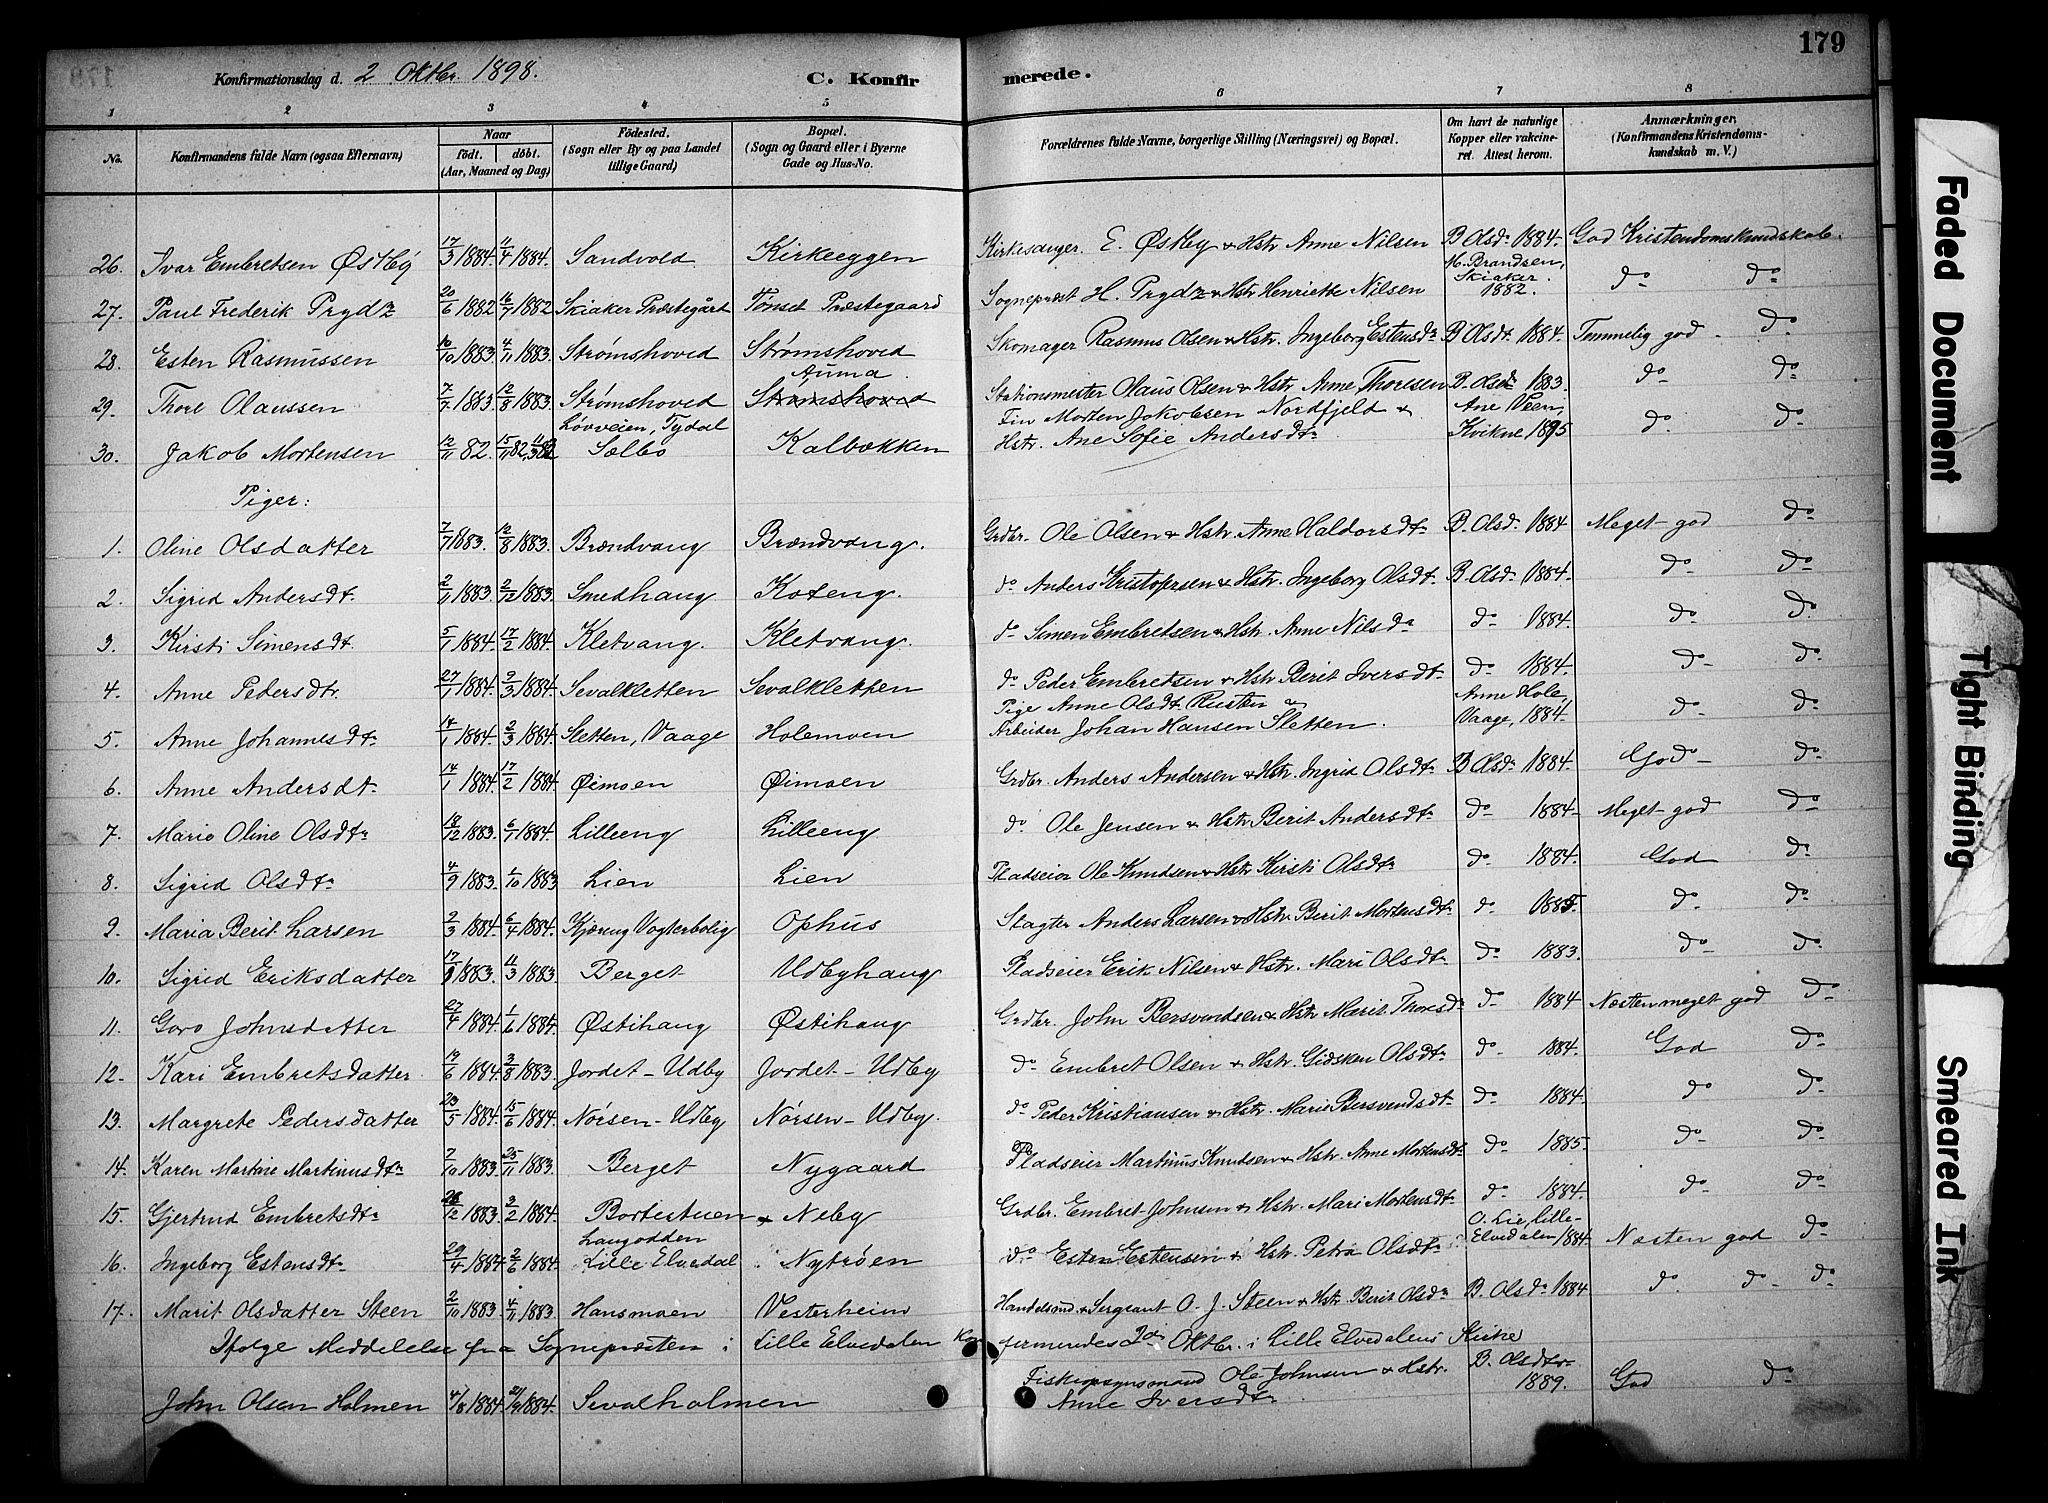 179
Konfirmationsdag d. 2 Oktbr. 1898. C. Konfirmerede.
1 2 3 4 5 6 7 8
No. Konfirmandens fulde Navn (ogsaa Efternavn) Naar født. døbt. (Aar, Maaned og Dag) Fødested. (Sogn eller By og paa Landet tillige Gaard) Bopæl. (Sogn og Gaard eller i Byerne Gade og Hus-No. Forældrenes fulde Navne, borgerlige Stilling (Næringsvei) og Bopæl. Om havt de naturlige Kopper eller vakcineret. Attest herom. Anmærkninger. (Konfirmandens Kristendomskundskab m. V.)
26. Ivar Embretsen Østby 17/3 1884. 11/4 1884. Sandvold. Kirkeeggen Kirkesanger. E. Østby & Hstr. Anne Nilsen B Olsdr 1884. God Kristendomskundskab.
27. Paul Frederik Prydz 20/6 1882 16/7 1882 Skiaker Præstegårt Tønset Præstegaard Sogneprest H. Prydz & Hstr Henriette Nilsen M. Brandsen, Skiaker. 1882. do do
28. Esten Rasmussen 10/10 1883. 4/11 1883. Strømshoved Strømshoved Skomager Rasmus Olsen & Hstr. Ingeborg Estensdr B Olsdt 1884. Temmelig god do
29. Thore Olaussen 7/7 1883. 12/8 1883. Strømshoved Auma. Strømshoved Stationsmester Olaus Olsen & Hstr. Anne Thoresen B. Olsdr 1883. do do
30. Jakob Mortensen 12/11 82. 15/11 82, Løvveien, Tydal Sælbo Kalbækken Fin Morten Jakobsen Nordfjeld & Hstr. Ane Sofie Andersdtr Ane Veen, Kvikne 1895 do do
Piger:
1. Oline Olsdatter 7/7 1883. 12/8 1883. Brændvang Brændvang. Grdbr. Ole Olsen & Hstr. Anne Haldorsdtr B. Olsdr 1884 Meget god do
2. Sigrid Andersdt. 2/11 1883. 2/12 1883. Smedhaug Koteng. do Anders Kristofersen & Hstr. Ingeborg Olsdt. B. Olsdr 1884. do do
3. Kirsti Simensdt. 5/1 1884. 17/2 1884. Kletvang. Kletvang. do Simen Embretsen & Hstr. Anne Nilsdr do 1884. do do
4. Anne Pedersdtr. 27/1 1884. 9/3 1884. Sevalkletten Sevalkletten do Peder Embretsen & Hstr Berit Iversdt. do 1884. do do
5. Anne Johannesdtr 14/1 1884. 2/3 1884. Sletten, Vaage Holemoen Pige Anne Olsdt. Rusten & Arbeider Johan Hansen Sletten. Anne Hole, Vaage, 1884. do do
6. Anne Andersdt. 14/1 1884. 17/2 1884. Øimoen Øimoen Grdbr. Anders Andersen & Hstr. Ingrid Olsdtr B Olsdr 1884. God do
7. Marie Oline Olsdtr 18/12 1883. 6/1 1884. Lilleeng Lilleeng do Ole Jensen & Hstr Berit Andersdtr do 1884. Meget god do
8. Sigrid Olsdtr 4/9 1883. 1/10 1883 Lien Lien Pladseier Ole Knudsen & Hstr Kirsti Olsdtr do 1884. God do
9. Maria Berit Larsen 2/3 1884. 6/4 1884. Kjøreng Vogterbolig Ophus Slagter Anders Larsen & Hstr. Berit Mortensdtr do 1885. do do
10. Sigrid Eriksdatter 17/1 1883. 11/3 1883. Berget Udbyhaug Pladseier Erik Nilsen & Hstr. Mari Olsdtr do 1883. do do
11. Goro Johnsdatter 27/4 1884. 1/6 1884. Østihaug Østihaug Grdbr. John Bersvendsen & Hstr Marit Thoresdr do 1884 Næsten meget god do
12. Kari Embretsdatter 19/6 1884 3/8 1883. Jordet-Udby Jordet-Udby do Embret Olsen & Hstr. Gidsken Olsdtr do 1884. God do
13. Margrete Pedersdatter 23/5 1884. 15/6 1884. Nørsen-Udby Nørsen-Udby. do Peder Kristiansen & Hstr. Marie Bersvendsdtr do 1884. do do
14. Karen Martine Martinusdtr 7/10 1883. 25/11 1883. Berget Nygaard Pladseier Martinus Knudsen & Hstr. Anne Mortensdtr do 1885. do do
15. Gjertrud Embretsdtr 28/12 1883. 3/2 1884. Bortistuen Neby Grdbr. Embret Johnsen & Hstr. Mari Mortensdtr do 1884. do do
16. Ingeborg Estensdtr 29/4 1884 2/6 1884. Langodden Lille Elvedal Nytrøen do Esten Estensen & Hstr. Petra Olsdtr O. Lie, Lille-Elvedalen 1884. Næsten god do
17. Marit Olsdatter Steen 2/10 1883. 4/11 1883. Hansmoen Vesterheim Handelsmd. & Sergeant O. J. Steen & Hstr Berit Olsdr B. Olsdr 1884 do do do
Ifølge Meddelelse fra Sognepræsten i Lille Elvedalen Konfirmeredes 2den Oktbr. i Lille Elvedalens Kirke
John Olsen Holmen 4/8 1884. 21/9 1884. Sevalholmen Fiskeopsynsmand Ole Johnsen & Hstr. Anne Iversdtr B. Olsdtr 1889. God do
Faded Document
Tight Binding
Smeared Ink